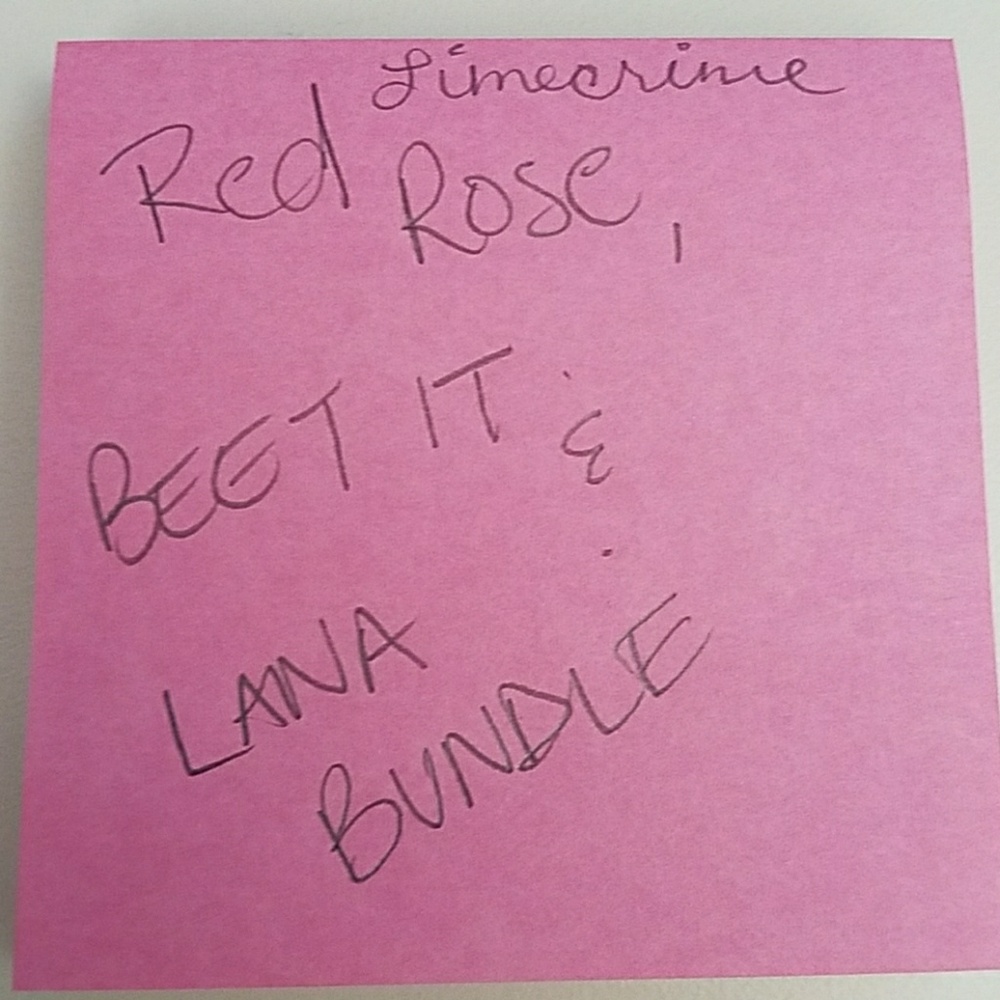 Limecrime
Red Rose,
BEET IT &
LANA
BUNDLE